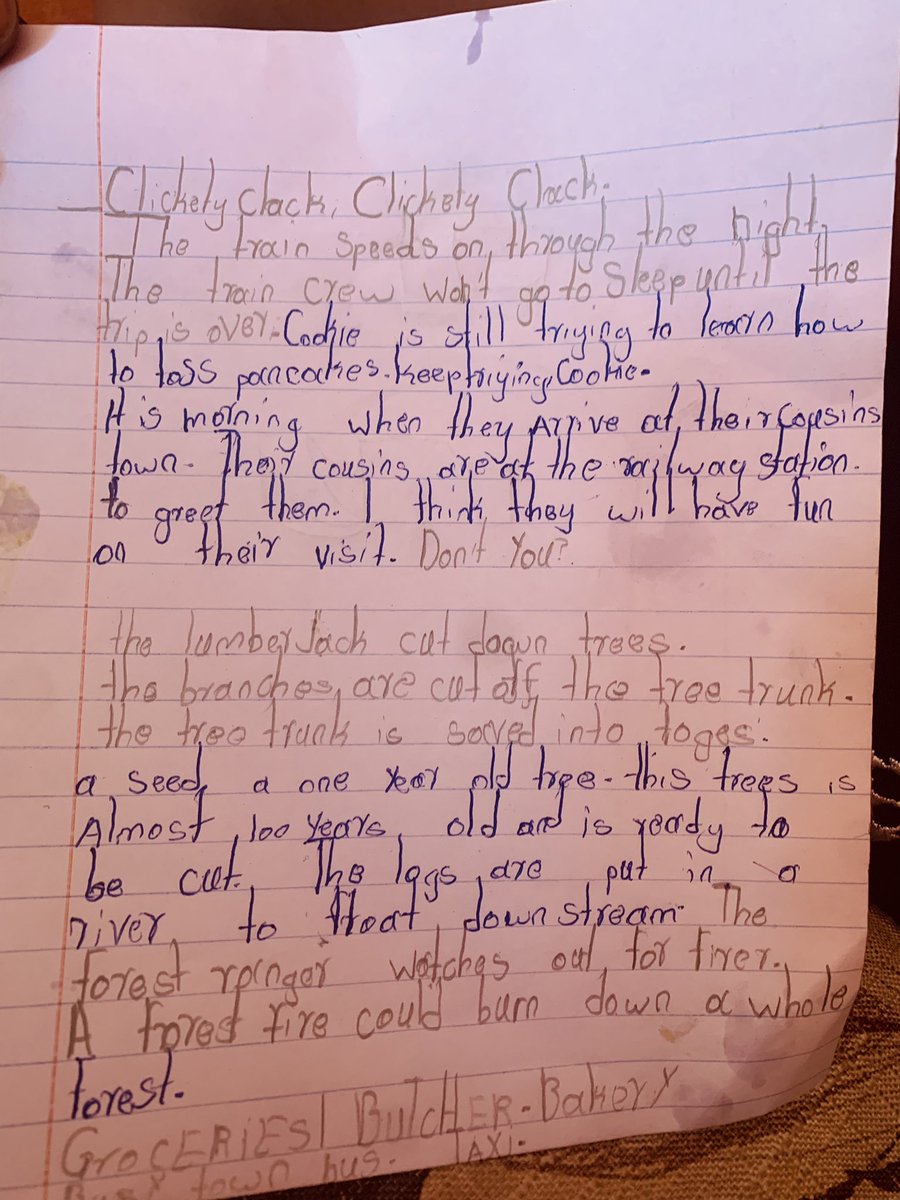 Clickety clack, Clickety Clack.
The train speeds on, through the night.
The train crew won't go to Sleep until the
trip, is over. Cookie is still triying to learn how
to toss pancakes. keep triying, Cookie.
It is morning when they Arrive at, their Cousins
town. Their cousins, are at the railway station.
to greet them. I think, they will have fun
on their visit. Don't You?
the lumberJack cut down trees.
the branches, are cut off, the tree trunk.
the tree trunk is sawed, into loges.
a seed, a one year old tree. this trees is
Almost, 100 years, old and is ready to
be cut. The logs, are put in a
river, to float, down stream. The
forest ranger watches out, for firer.
A forest fire could burn down a whole
forest.
GROCERIES! ButcHER. Bakery
Busy town bus. TAXI.